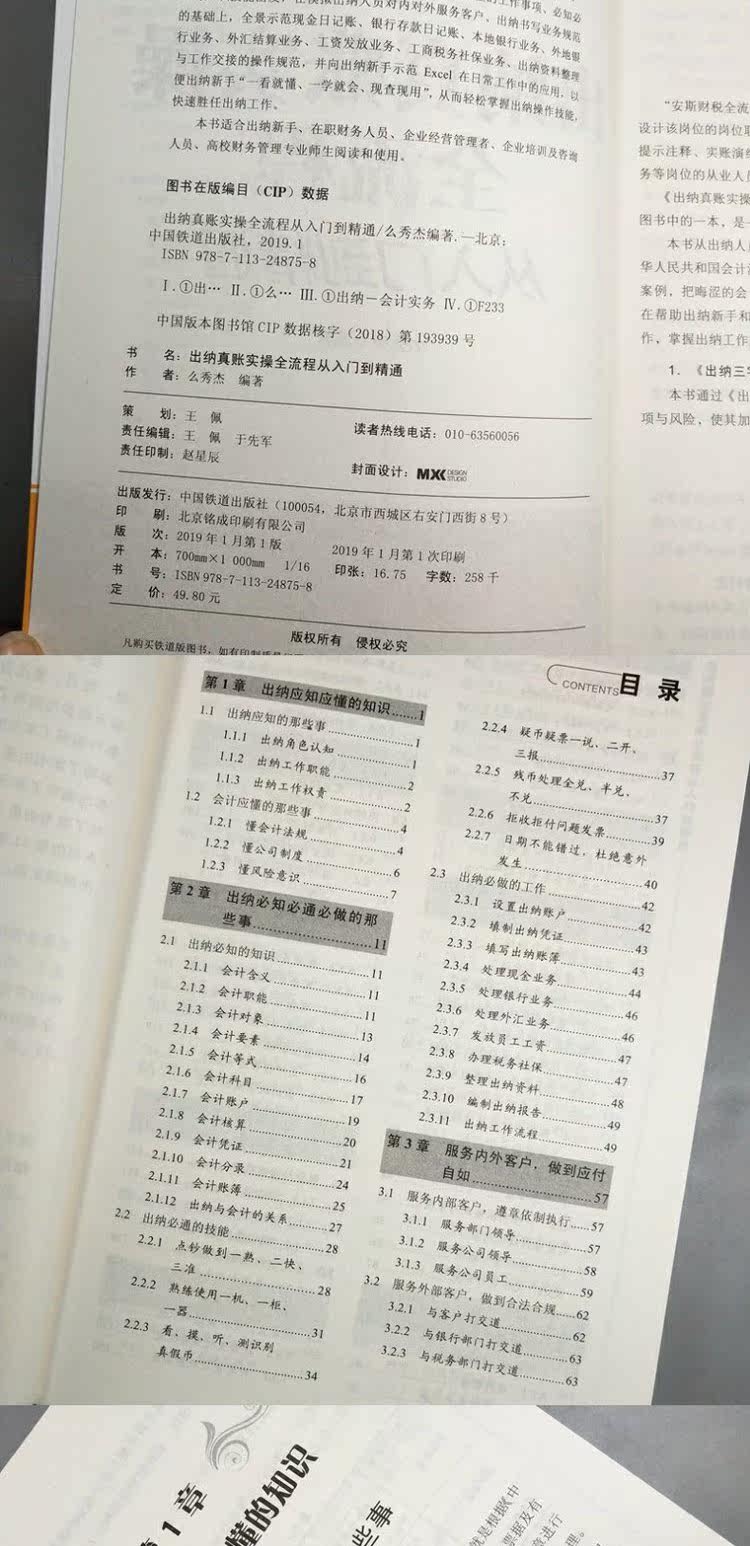 的工作事项、必知必
出纳人员对内对外服务客户、出纳书写业务规范
的基础上，全景示范现金日记账、银行存款日记账、本地银行业务、外地银
行业务、外汇结算业务、工资发放业务、工商税务社保业务、出纳资料整理
与工作交接的操作规范，并向出纳新手示范 Excel 在日常工作中的应用，以
便出纳新手“一看就懂、一学就会、现查现用”，从而轻松掌握出纳操作技能，
快速胜任出纳工作。
本书适合出纳新手、在职财务人员、企业经营管理者、企业培训及咨询
人员、高校财务管理专业师生阅读和使用。
图书在版编目（CIP）数据
出纳真账实操全流程从入门到精通/么秀杰编著.—北京：
中国铁道出版社，2019.1
ISBN 978-7-113-24875-8
Ⅰ.①出… Ⅱ.①么… Ⅲ.①出纳－会计实务 Ⅳ.①F233
中国版本图书馆 CIP 数据核字（2018）第 193939 号
书 名：出纳真账实操全流程从入门到精通
作 者：么秀杰 编著
策 划：王 佩
责任编辑：王 佩 于先军 读者热线电话：010-63560056
责任印制：赵星辰 封面设计：MX DESIGN STUDIO
出版发行：中国铁道出版社（100054，北京市西城区右安门西街 8 号）
印 刷：北京铭成印刷有限公司
版 次：2019 年 1 月第 1 版 2019 年 1 月第 1 次印刷
开 本：700mm×1 000mm 1/16 印张：16.75 字数：258 千
书 号：ISBN 978-7-113-24875-8
定 价：49.80 元
版权所有 侵权必究
凡购买铁道版图书，如有印制质量
“安斯财税全流
设计该岗位的岗位职
提示注释、实账演练
务等岗位的从业人员
《出纳真账实操
图书中的一本，是
本书从出纳人
华人民共和国会计法
案例，把晦涩的会
在帮助出纳新手和
作，掌握出纳工作
1. 《出纳三字
本书通过《出
项与风险，使其加
CONTENTS 目 录
第 1 章 出纳应知应懂的知识......1
1.1 出纳应知的那些事......1
1.1.1 出纳角色认知......1
1.1.2 出纳工作职能......2
1.1.3 出纳工作权责......2
1.2 会计应懂的那些事......4
1.2.1 懂会计法规......4
1.2.2 懂公司制度......6
1.2.3 懂风险意识......7
第 2 章 出纳必知必通必做的那
些事......11
2.1 出纳必知的知识......11
2.1.1 会计含义......11
2.1.2 会计职能......11
2.1.3 会计对象......13
2.1.4 会计要素......14
2.1.5 会计等式......16
2.1.6 会计科目......17
2.1.7 会计账户......19
2.1.8 会计核算......20
2.1.9 会计凭证......21
2.1.10 会计分录......24
2.1.11 会计账簿......25
2.1.12 出纳与会计的关系......27
2.2 出纳必通的技能......28
2.2.1 点钞做到一熟、二快、
三准......28
2.2.2 熟练使用一机、一柜、
一器......31
2.2.3 看、摸、听、测识别
真假币......34
2.2.4 疑币疑票一说、二开、
三报......37
2.2.5 残币处理全兑、半兑、
不兑......37
2.2.6 拒收拒付问题发票......39
2.2.7 日期不能错过，杜绝意外
发生......40
2.3 出纳必做的工作......42
2.3.1 设置出纳账户......42
2.3.2 填制出纳凭证......43
2.3.3 填写出纳账簿......43
2.3.4 处理现金业务......44
2.3.5 处理银行业务......46
2.3.6 处理外汇业务......46
2.3.7 发放员工工资......47
2.3.8 办理税务社保......47
2.3.9 整理出纳资料......48
2.3.10 编制出纳报告......49
2.3.11 出纳工作流程......49
第 3 章 服务内外客户，做到应付
自如......57
3.1 服务内部客户，遵章依制执行......57
3.1.1 服务部门领导......57
3.1.2 服务公司领导......58
3.1.3 服务公司员工......59
3.2 服务外部客户，做到合法合规......62
3.2.1 与客户打交道......62
3.2.2 与银行部门打交道......63
3.2.3 与税务部门打交道......63
第 1 章
懂的知识
些事
就是根据《中
票据及有
章进行
理。